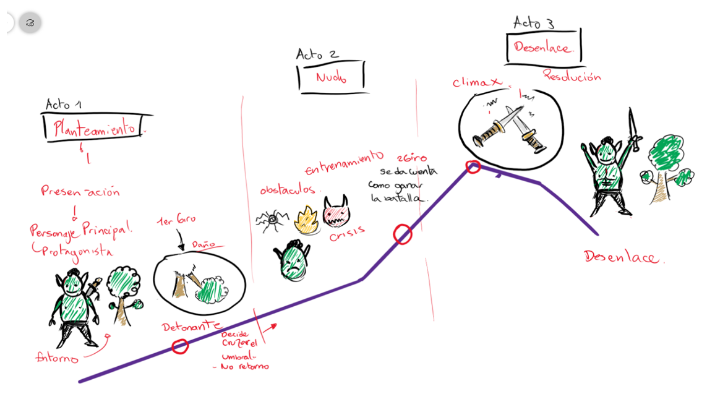 Acto 1
Planteamiento
Presentación
Personaje Principal.
Protagonista
Entorno
1er Giro
Daño
Detonante
Decide
Cruzar el
umbral.
- No retorno
Acto 2
Nudo
obstaculos.
Entrenamiento
crisis
2Giro
se da cuenta
como ganar
la batalla.
Acto 3
Desenlace
Resolución
climax
Desenlace.